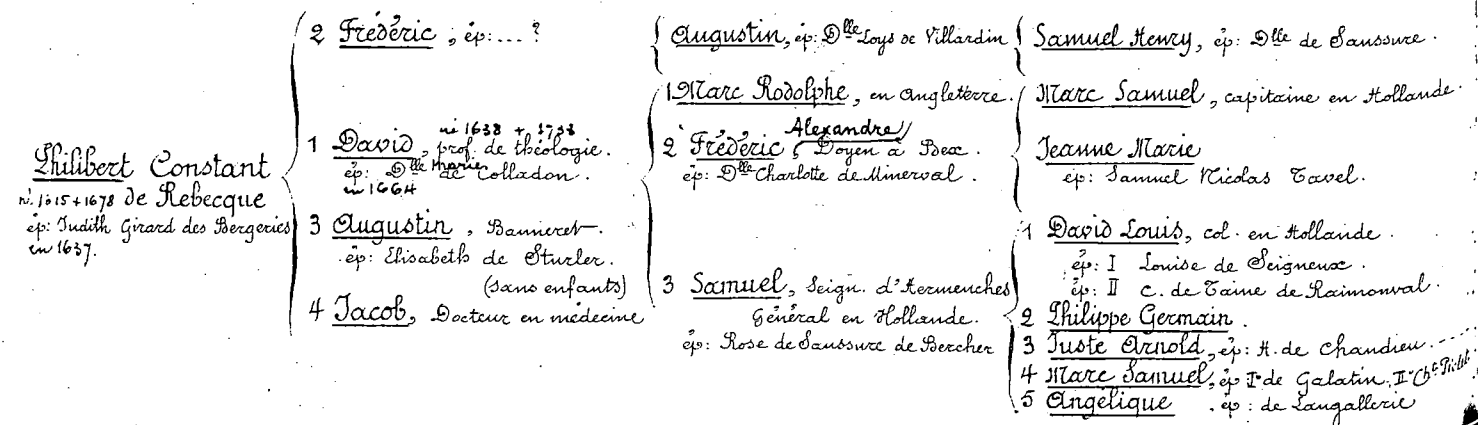 Philibert Constant
né 1615 + 1678 de Rebecque
ép: Judith Girard des Bergeries
en 1637.
2 Frédéric ; ép: .... ?
1 David, prof. de théologie.
né 1638 + 1733
ép: Dlle Marie de Colladon.
en 1664
3 Augustin, Banneret.
ép: Elisabeth de Sturler.
(sans enfants)
4 Jacob, Docteur en médecine
Augustin, ép: Dlle Loys de Villardin
1 Marc Rodolphe, en Angleterre.
2 Frédéric Alexandre, Doyen à Bex.
ép: Dlle Charlotte de Minerval.
3 Samuel, Seign. d'Hermenches
Général en Hollande.
ép: Rose de Saussure de Bercher
Samuel Henry, ép: Dlle de Saussure.
Marc Samuel, capitaine en Hollande.
Jeanne Marie
ép: Samuel Nicolas Tavel.
1 David Louis, col. en Hollande.
ép: I Louise de Seigneux.
ép: II C. de Taine de Raimonval.
2 Philippe Germain.
3 Juste Arnold, ép: H. de Chandieu
4 Marc Samuel, ép I° de Galatin, II° Chte
5 Angélique ép: de Langallerie